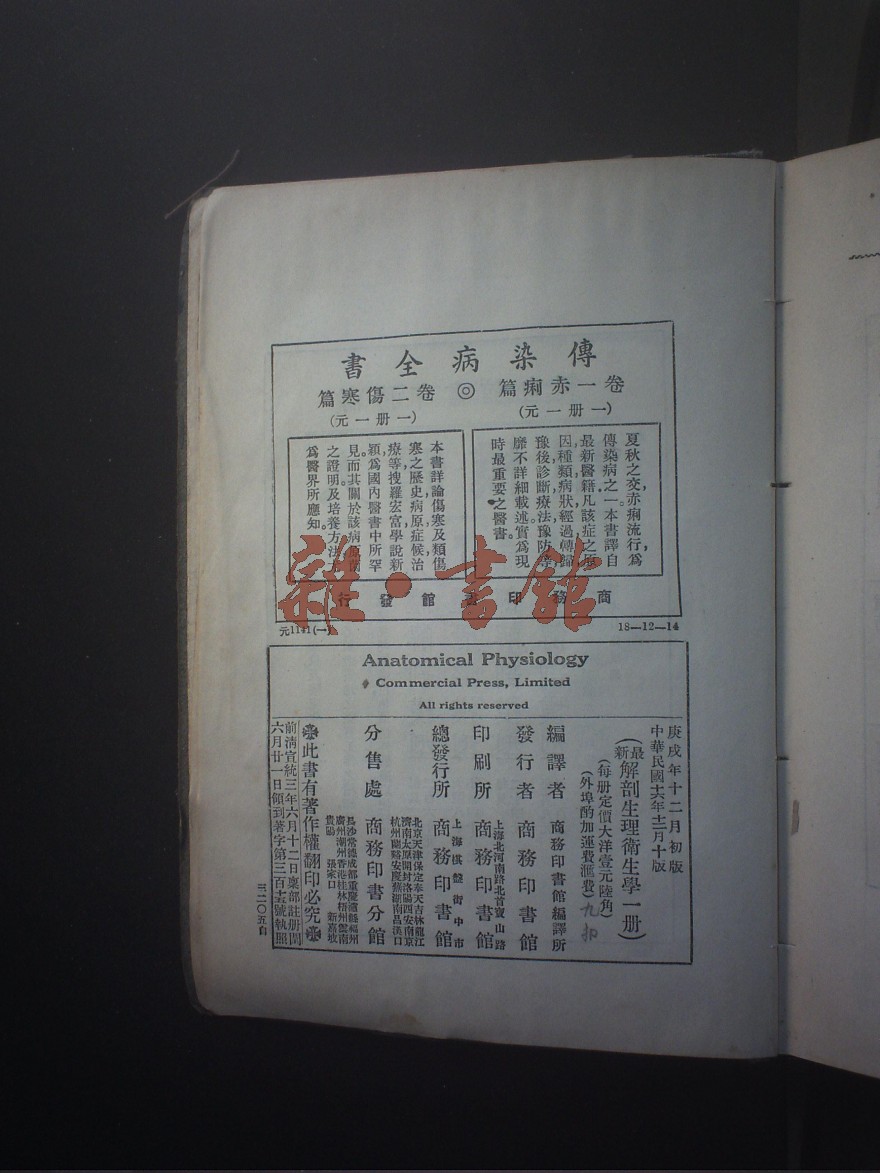 傳染病全書
卷一赤痢篇
(一册一元)
◎
卷二傷寒篇
(一册一元)
夏秋之交,赤痢流行,爲
傳染病之一。本書譯自
最新醫籍,凡該症之原
因,種類,病狀,經過,轉歸,
豫後,診斷,療法,豫防等,
靡不詳細載述。實爲現
時最重要之醫書。
本書詳論傷寒及類傷
寒之歷史,病原,症候,治
療等,搜羅宏富,學說新
穎,爲國內醫書中所罕
見。而其關於該病原菌
之證明及培養方法,
爲醫界所應知。
商務印書館發行
雜·書館
元1141(一)
18—12—14
Anatomical Physiology
Commercial Press, Limited
All rights reserved
庚戌年十二月初版
中華民國十六年十二月十版
(最新解剖生理衛生學一册)
(每册定價大洋壹元陸角)
(外埠酌加運費匯費)
九扣
編譯者 商務印書館編譯所
發行者 商務印書館
上海北河南路北首寶山路
印刷所 商務印書館
上海棋盤街中市
總發行所 商務印書館
北京天津保定奉天吉林龍江
濟南太原開封洛陽西安南京
杭州蘭谿安慶蕪湖南昌漢口
分售處 商務印書分館
長沙常德成都重慶瀘縣福州
廣州潮州香港桂林梧州雲南
貴陽 張家口 新嘉坡
此書有著作權翻印必究
前淸宣統三年六月十二日稟部註册閏
六月廿一日領到著字第三百十二號執照
三二〇五自